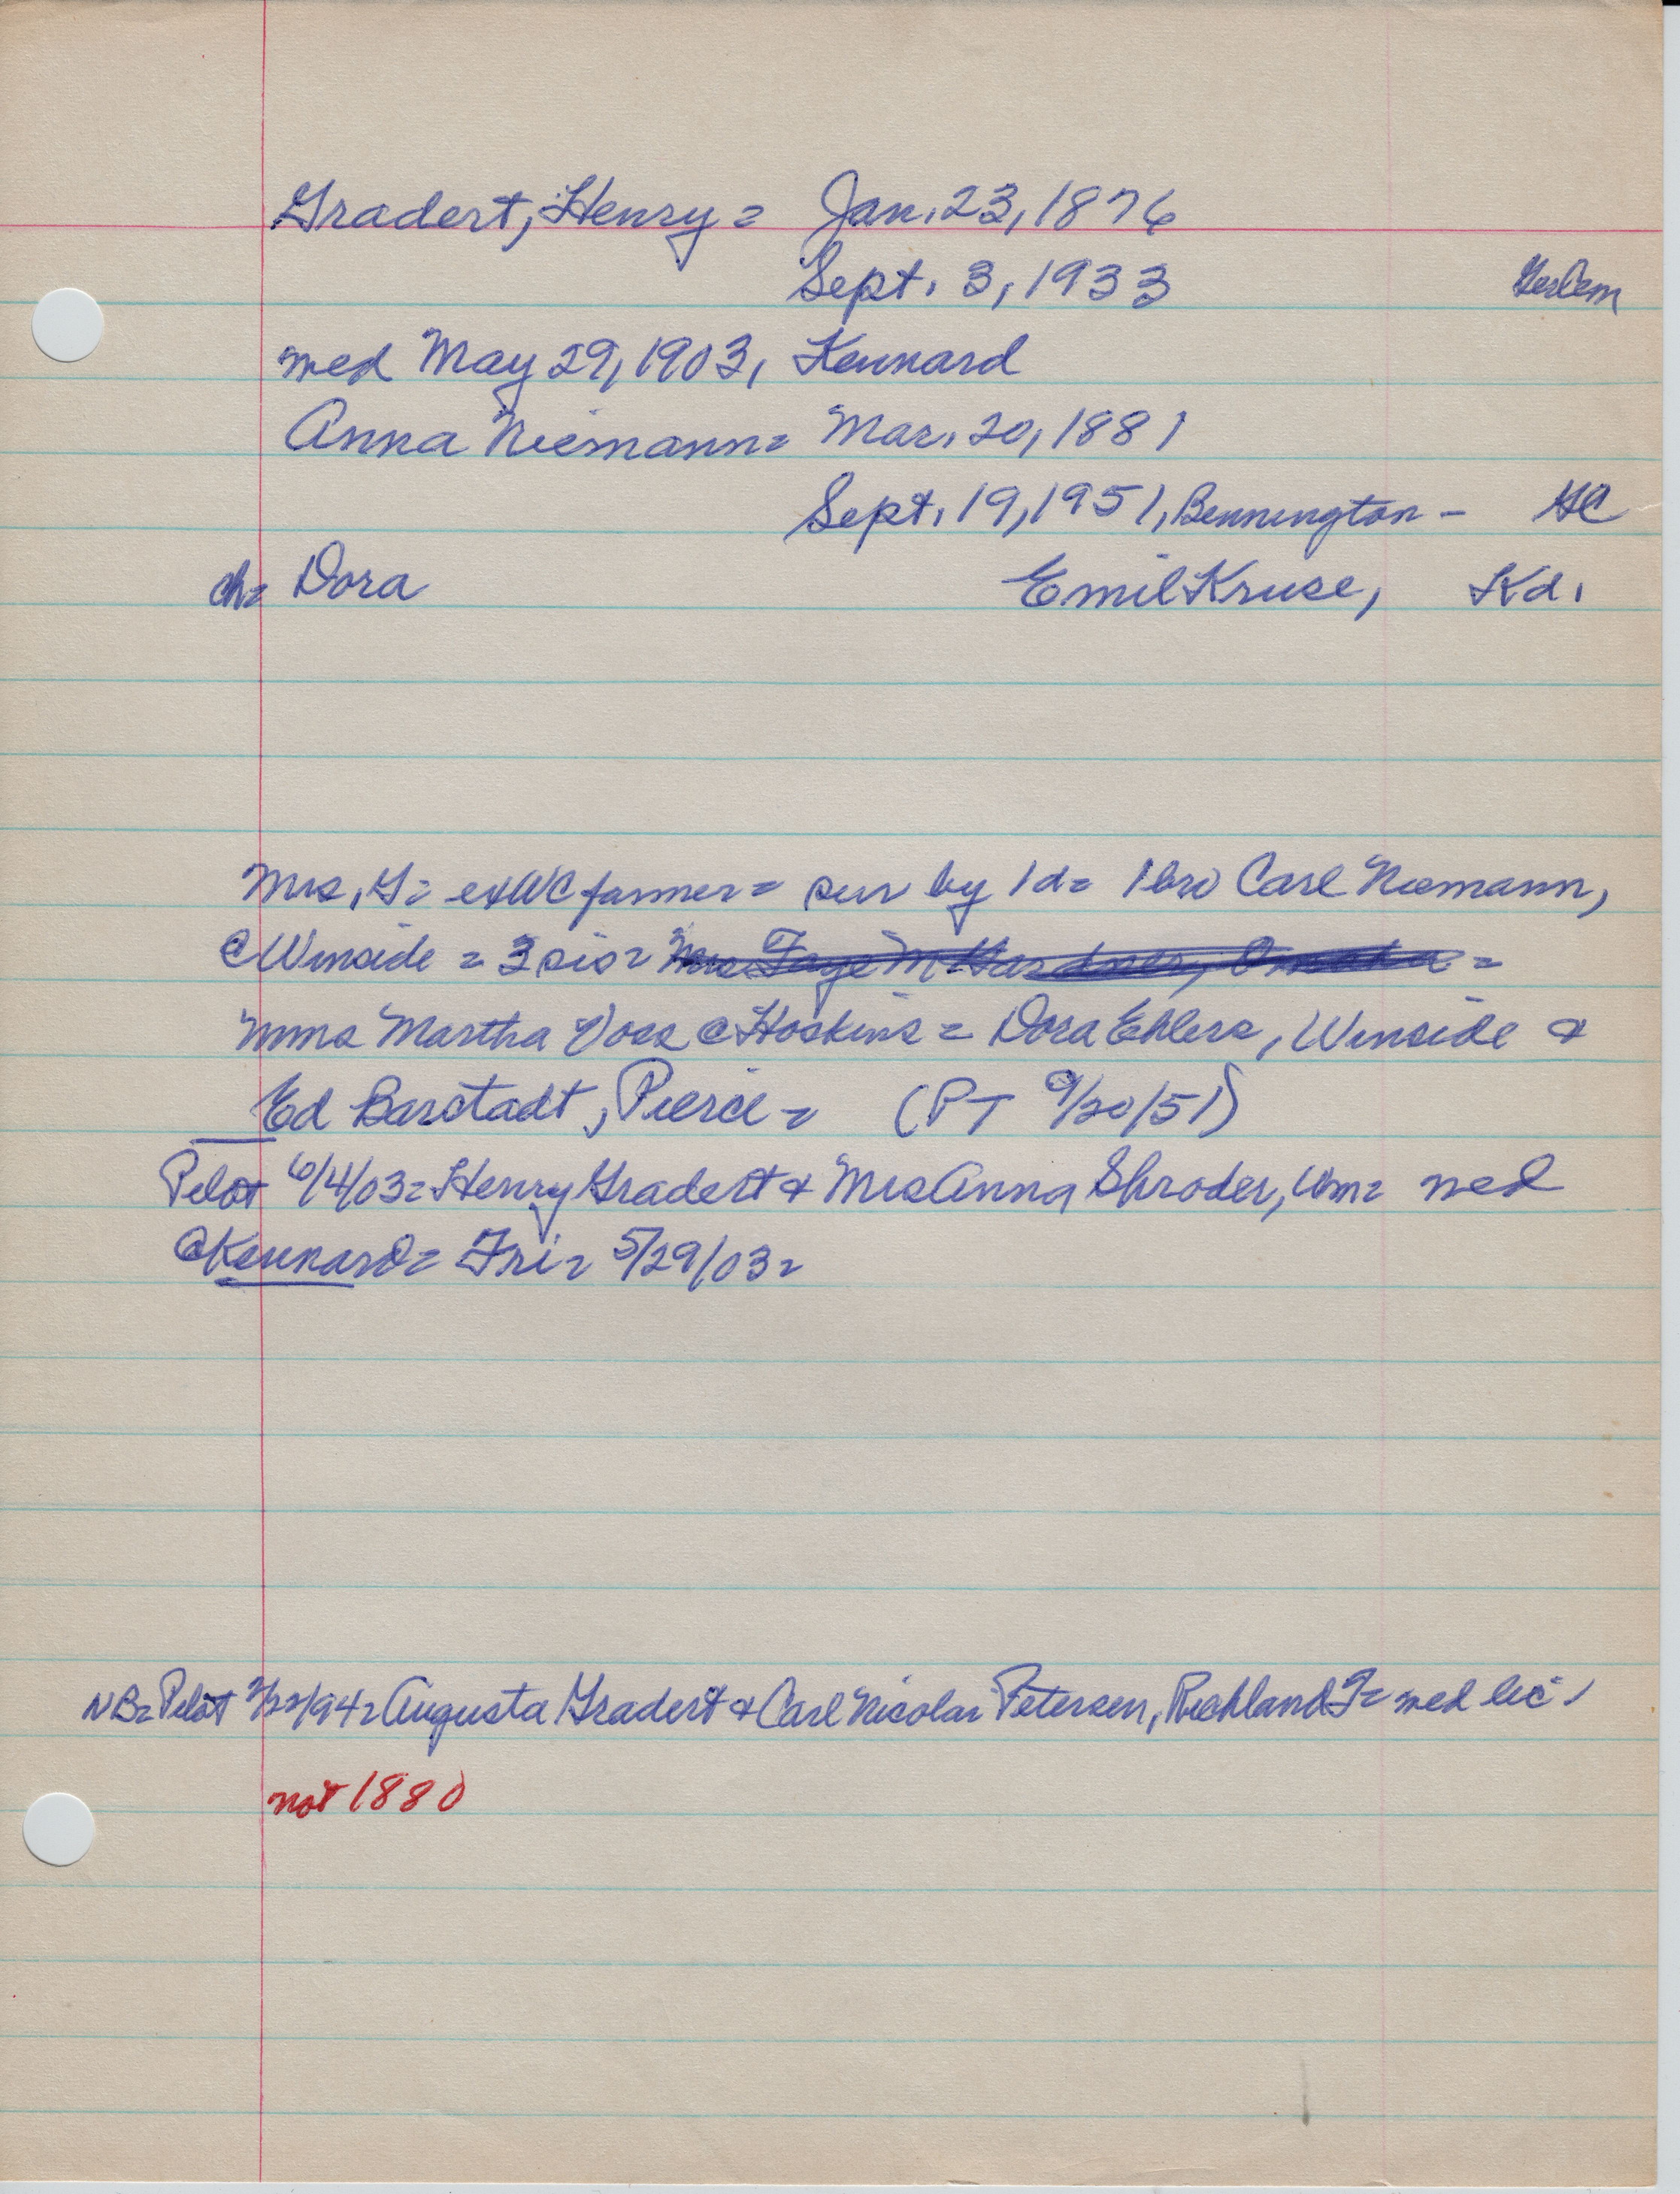 Gradert, Henry = Jan. 23, 1876
Sept. 3, 1933 GerCem
med May 29, 1903, Kennard
Anna Niemann = Mar. 20, 1881
Sept. 19, 1951, Bennington - GC
ch= Dora Emil Kruse, Kd.
Mrs. G= exWC farmer= sur by 1d= 1bro Carl Niemann,
@Winside = 3 sis= =
mms Martha Voss @Hoskins = Dora Ehlers, Winside &
Ed Barstadt, Pierce = (PT 9/20/51)
Pilot 6/4/03= Henry Gradert & Mrs Anna Shroder, Wm= med
@Kennard= Fri= 5/29/03=
NB= Pilot 2/22/94= Augusta Gradert & Carl Nicolai Petersen, Richland T= med lic.
not 1880